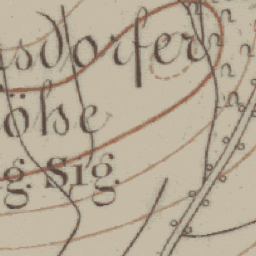 sdorfer
öhe
g. Sig.